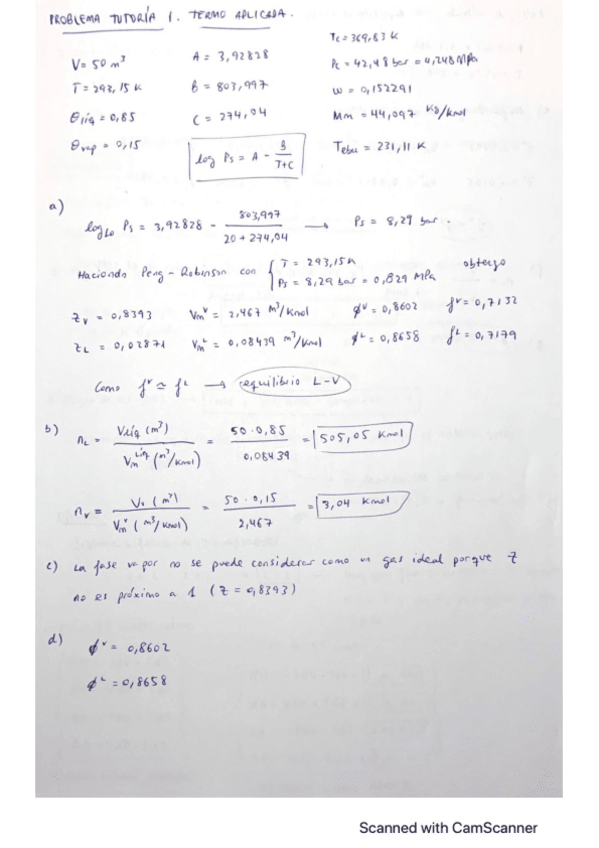 PROBLEMA TUTORÍA 1. TERMO APLICADA.
V = 50 m³ A = 3,92828 Tc = 369,83 K
T = 293,15 K B = 803,997 Pc = 42,48 bar = 4,248 MPa
θ líq = 0,85 C = 274,04 w = 0,152291
θ vap = 0,15 log Ps = A - B/(T+C) Mm = 44,097 kg/kmol
Tebu = 231,11 K
a)
log₁₀ Ps = 3,92828 - 803,997/(20 + 274,04) → Ps = 8,29 bar.
Haciendo Peng-Robinson con { T = 293,15 K obtengo
Ps = 8,29 bar = 0,829 MPa
Zv = 0,8393 Vmᵛ = 2,467 m³/kmol ϕᵛ = 0,8602 fᵛ = 0,7132
ZL = 0,02871 Vmᴸ = 0,08439 m³/kmol ϕᴸ = 0,8658 fᴸ = 0,7179
Como fᵛ ≃ fᴸ → equilibrio L-V
b) nL = Vlíq (m³)/Vm líq (m³/kmol) = 50·0,85/0,08439 = 505,05 kmol
nv = Vv (m³)/Vmᵛ (m³/kmol) = 50·0,15/2,467 = 3,04 kmol
c) La fase vapor no se puede considerar como un gas ideal porque Z
no es próximo a 1 (Z = 0,8393)
d) ϕᵛ = 0,8602
ϕᴸ = 0,8658
Scanned with CamScanner